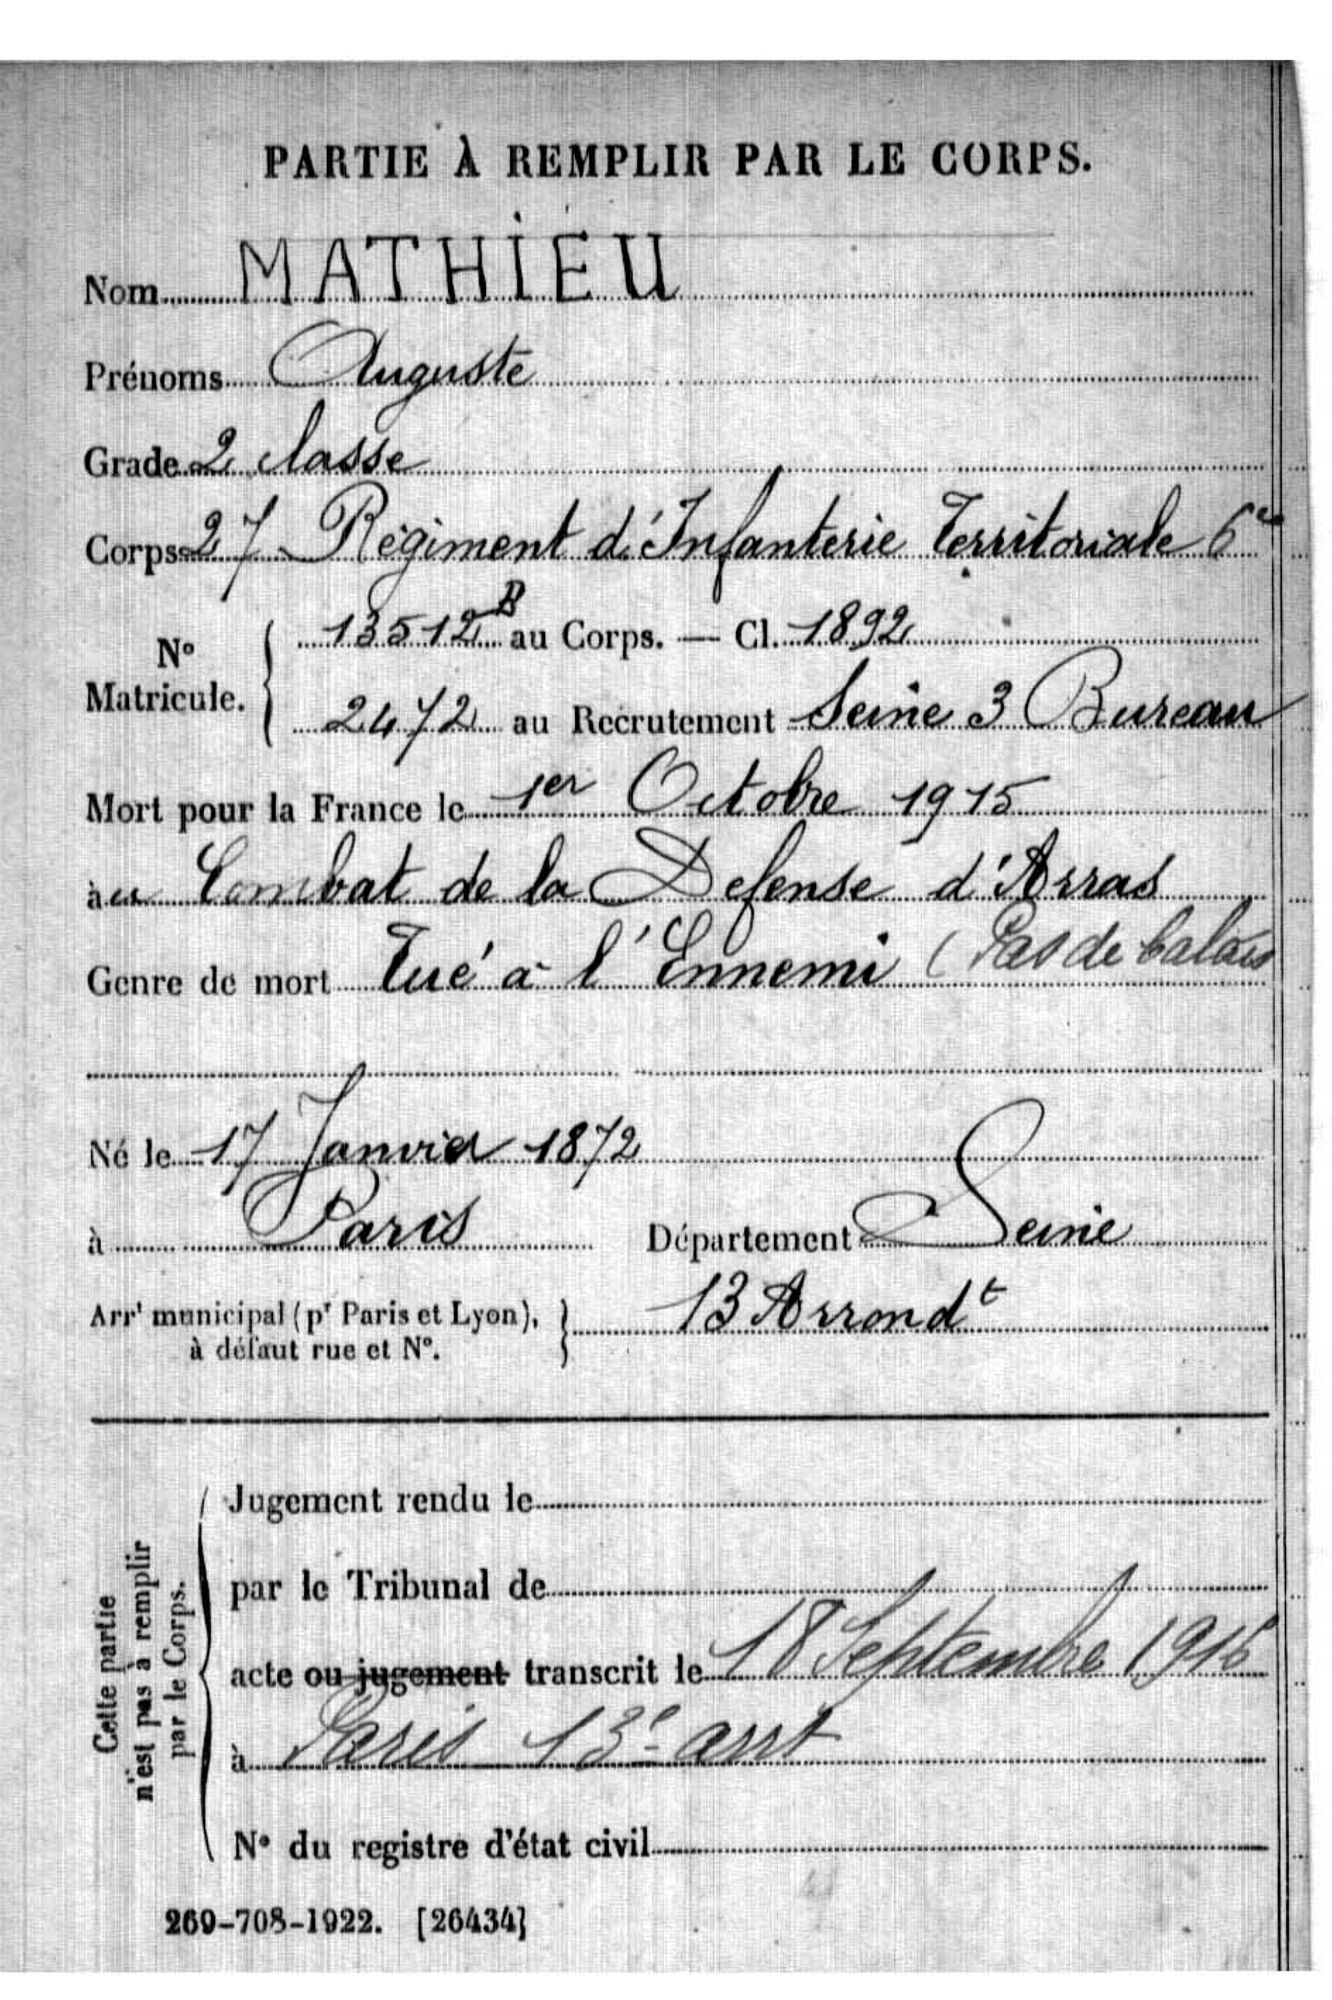 PARTIE À REMPLIR PAR LE CORPS.
Nom MATHIEU
Prénoms Auguste
Grade 2 classe
Corps 27 Régiment d'Infanterie Territoriale 6e
13512 B au Corps. — Cl. 1892
N° Matricule.
2472 au Recrutement Seine 3 Bureau
Mort pour la France le 1er Octobre 1915
au Combat de la Defense d'Arras
(Pas de Calais
Genre de mort Tué à l'Ennemi
Né le 17 Janvier 1872
à Paris Département Seine
Arrt municipal (pr Paris et Lyon), à défaut rue et N°. 13 Arrondt
Cette partie n'est pas à remplir par le Corps.
Jugement rendu le
par le Tribunal de
acte ou jugement transcrit le 18 Septembre 1916
à Paris 13e arrt
N° du registre d'état civil
269-708-1922. [26434]